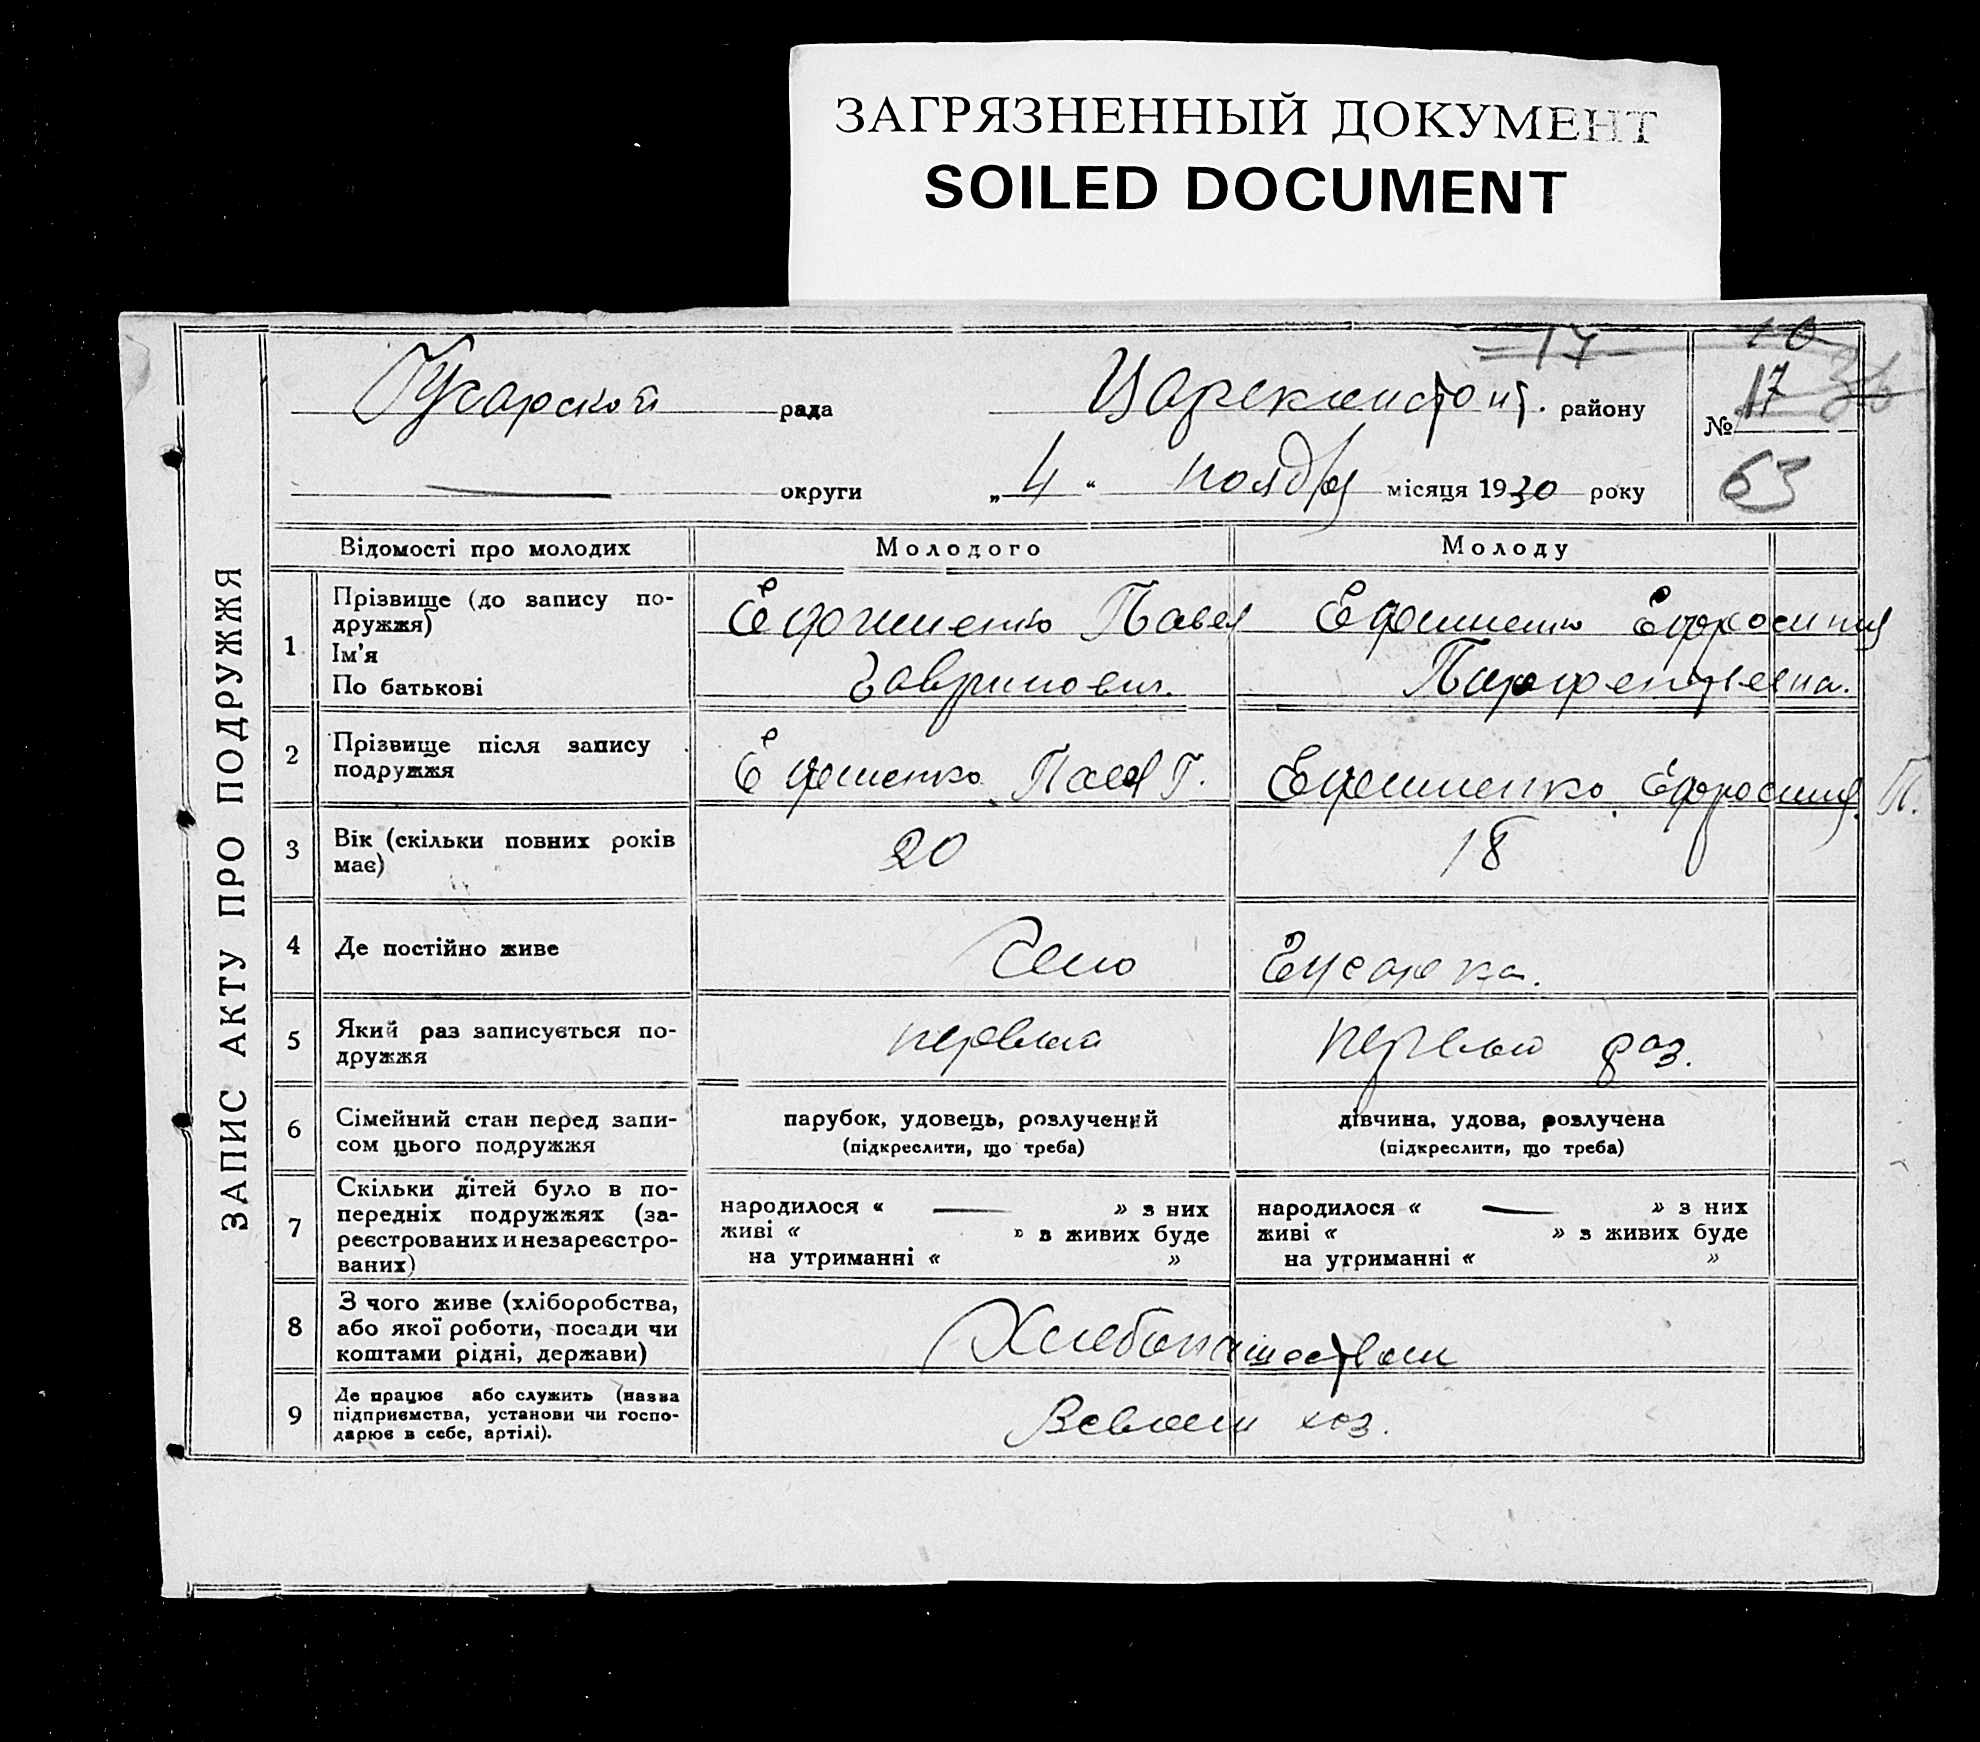 ЗАГРЯЗНЕННЫЙ ДОКУМЕНТ
SOILED DOCUMENT
ЗАПИС АКТУ ПРО ПОДРУЖЖЯ
17
10
Гусарской рада района району № 17 36
округи „ 4 “ ноября місяця 1930 року
63
Відомості про молодих Молодого Молоду
1 Прізвище (до запису по-
дружжя)
Ім'я
По батькові
Павел
Ефросиния
Гаврилович.
Парфентьевна.
2 Прізвище після запису
подружжя
Павел Г.
Ефросиния П.
3 Вік (скільки повних років
має)
20 18
4 Де постійно живе Село Гусарка.
5 Який раз записується по-
дружжя
первый первый раз.
6 Сімейний стан перед запи-
сом цього подружжя
парубок, удовець, розлучений
(підкреслити, що треба)
дівчина, удова, розлучена
(підкреслити, що треба)
7 Скільки дітей було в по-
передніх подружжях (за-
реєстрованих и незареєстро-
ваних)
народилося « — » з них
живі « » з живих буде
на утриманні « »
народилося « — » з них
живі « » з живих буде
на утриманні « »
8 З чого живе (хліборобства,
або якої роботи, посади чи
коштами рідні, держави)
Хлебопашеством
9 Де працює або служить (назва
підприємства, установи чи госпо-
дарює в себе, артілі).
хоз.